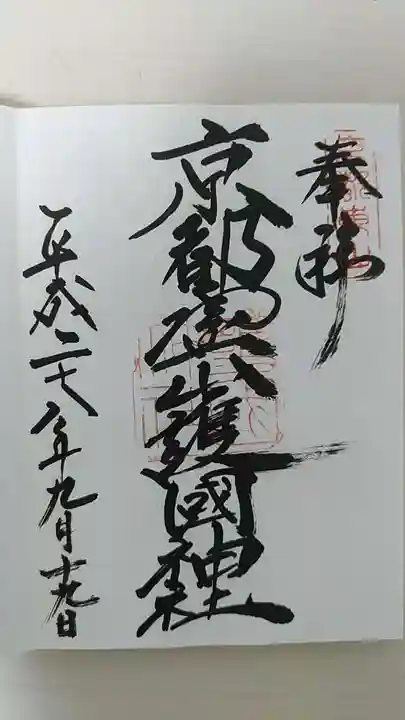 奉拝
京都靈山護國神社
平成二十八年九月十九日